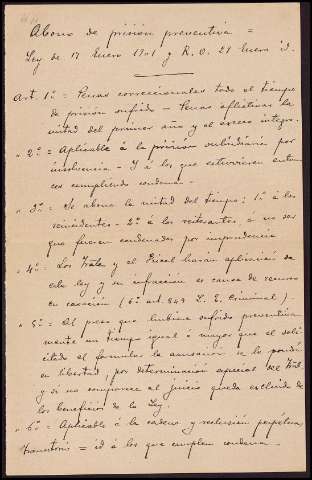 Abono de prisión preventiva =
Ley de 17 Enero 1901 y R. O. 29 Enero id.
Art. 1º = Penas correccionales todo el tiempo
de prisión sufrido - Penas aflictivas la
mitad del primer año y el exceso íntegro.
" 2º = Aplicable á la prisión subsidiaria por
insolvencia - Y á los que estuvieren enton-
ces cumpliendo condena -
" 3º = Se abona la mitad del tiempo: 1º á los
reincidentes - 2º á los reiterantes á no ser
que fueren condenados por imprudencia
" 4º = Los Trales y el Fiscal harán aplicación de
esta ley y su infracción es causa de recurso
en casación (6º art. 849 L. E. Criminal) -
" 5º = Al preso que hubiere sufrido preventiva-
mente un tiempo igual ó mayor que el soli-
citado al formular la acusación se le pondrá
en libertad, por determinación especial del Tral,
y si no comparece al juicio queda excluido de
los beneficios de la Ley.
" 6º = Aplicable á la cadena y reclusión perpétua
Transitoria = id á los que cumplen condena -